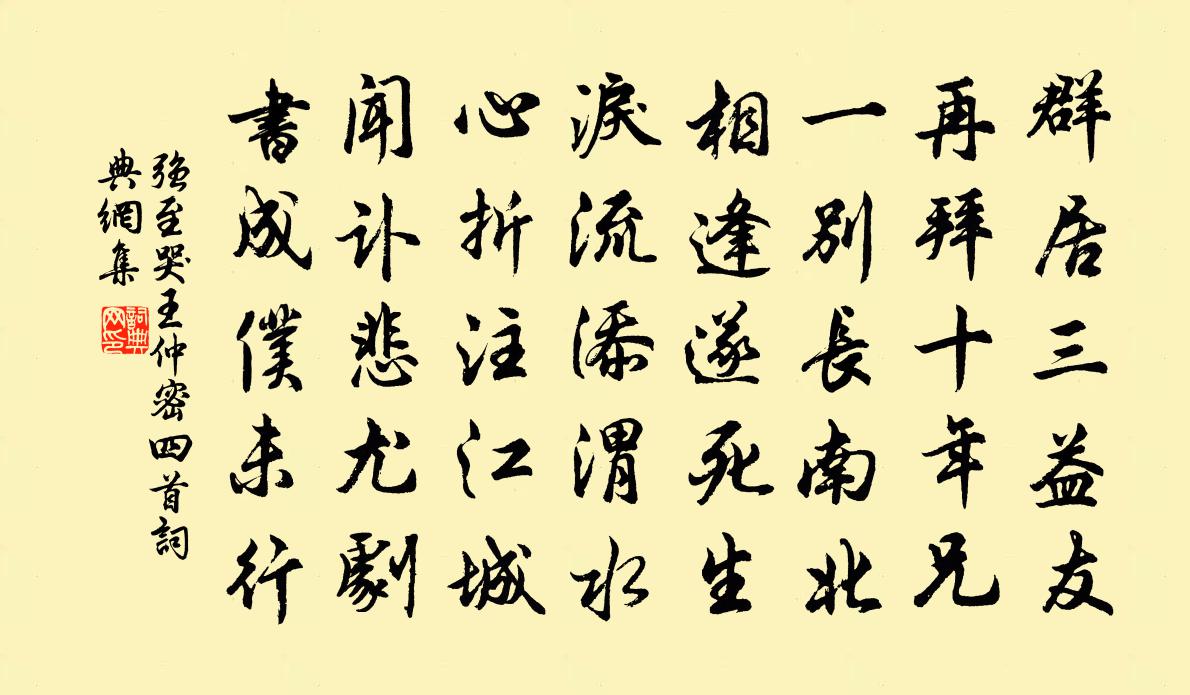 群居三益友
再拜十年兄
一别長南北
相逢遂死生
淚流添渭水
心折注江城
闻訃悲尤劇
書成僕未行
強至哭王仲密四首詞
典網集
詞典
网印